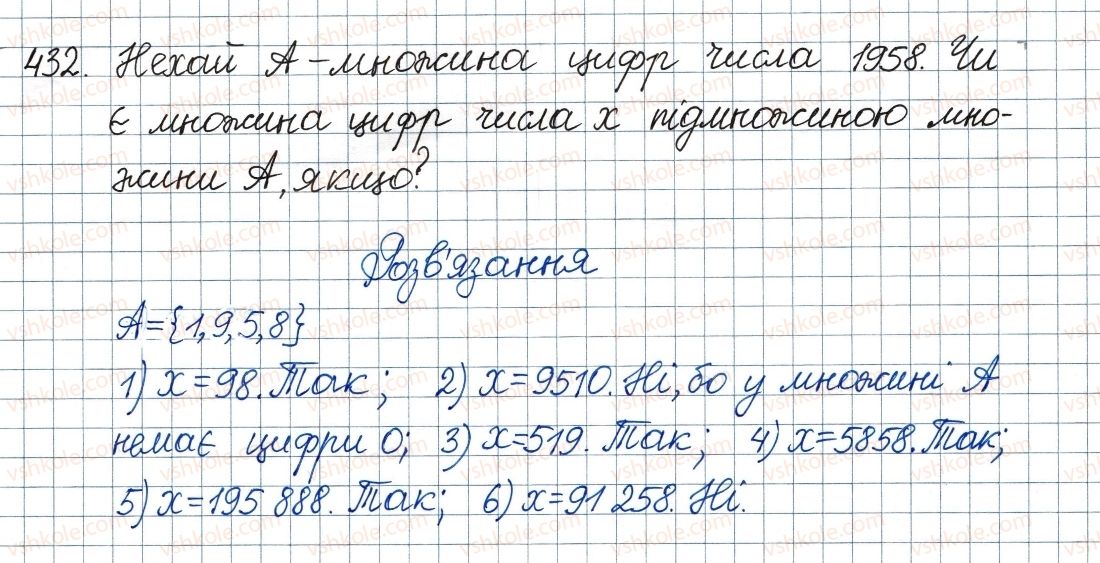 432. Нехай А – множина цифр числа 1958. Чи
є множина цифр числа х підмножиною мно-
жини А, якщо?
Розв'язання
А={1,9,5,8}
1) х=98. Так; 2) х=9510. Ні, бо у множині А
немає цифри 0; 3) х=519. Так; 4) х=5858. Так;
5) х=195 888. Так; 6) х=91 258. Ні.